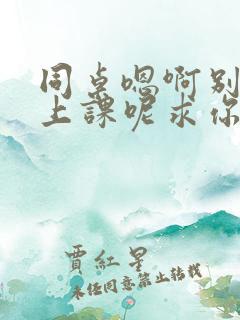 同桌嗯啊别
上課呢求你
賈紅星
未经同意禁止转载